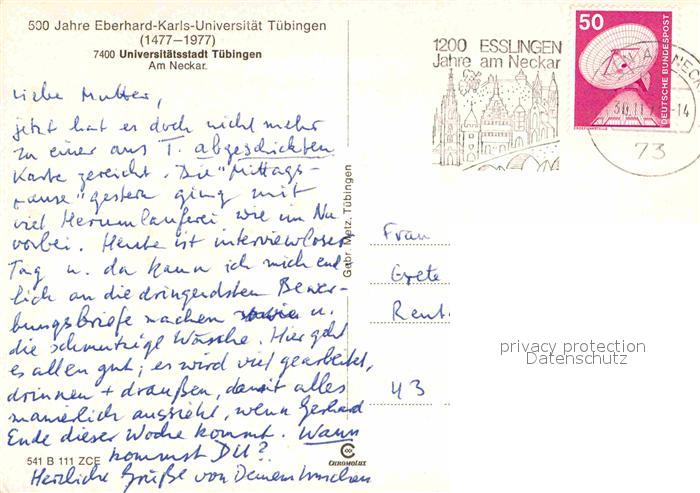 500 Jahre Eberhard-Karls-Universität Tübingen
(1477–1977)
7400 Universitätsstadt Tübingen
Am Neckar.
Liebe Mutter,
jetzt hat es doch nicht mehr
zu einer aus T. abgeschickten
Karte gereicht. Die "Mittags-
pause" gestern ging mit
viel Herumlauferei wie im Nu
vorbei. Heute ist interviewloser
Tag u. da kann ich mich end-
lich an die dringendsten Bewer-
bungsbriefe machen u.
die schmutzige Wäsche. Hier geht
es allen gut; es wird viel gearbeitet,
drinnen + draußen, damit alles
manierlich aussieht, wenn Gerhard
Ende dieser Woche kommt. Wann
kommst DU?
Herzliche Grüße von Deinem
541 B 111 ZCE
CHROMOLUX
Gebr. Metz, Tübingen
1200 ESSLINGEN
Jahre am Neckar
50
DEUTSCHE BUNDESPOST
-14
73
Frau
Grete
Rent
43
privacy protection
Datenschutz